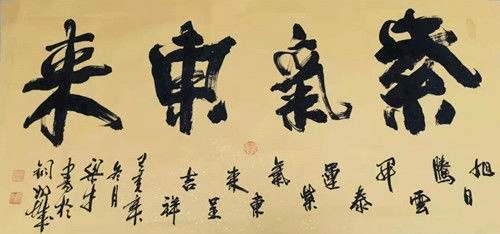 紫氣東來
旭日
騰雲
開泰
運紫
氣東
來呈
吉祥
冬月
書於